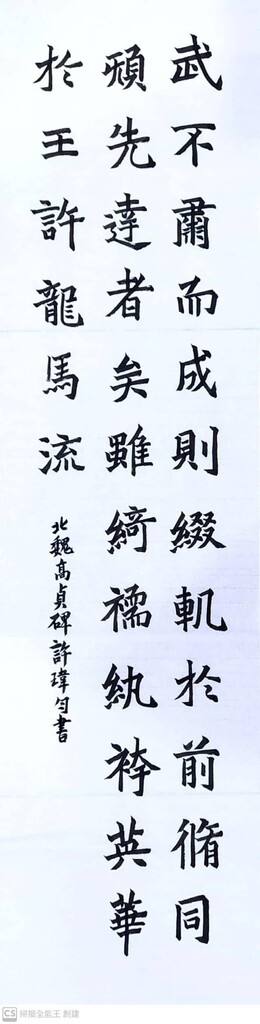 武不肅而成則綴軌於前脩同
先達者矣雖綺襦紈袴英華
於王許龍馬流
北魏高貞碑許瑋勻書
CS 掃描全能王 創建